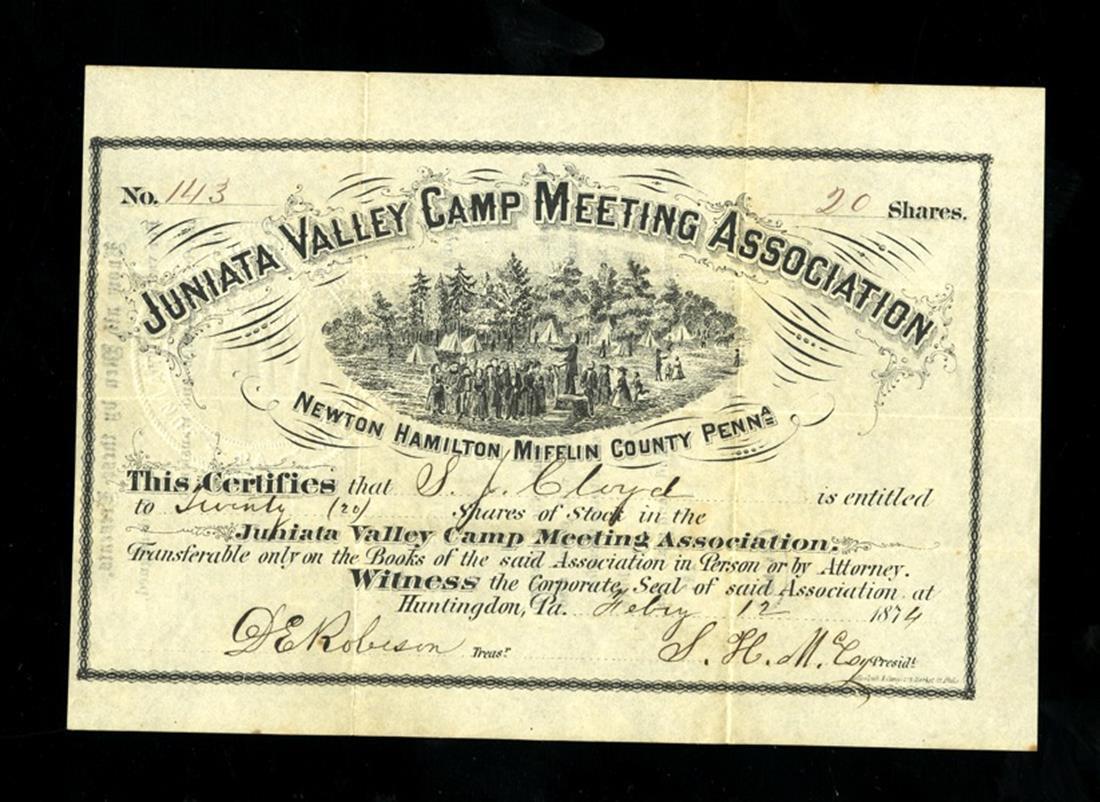 No. 143
20 Shares.
JUNIATA VALLEY CAMP MEETING ASSOCIATION
NEWTON HAMILTON MIFFLIN COUNTY PENNA
This Certifies that S. J. Cloyd is entitled
to Twenty (20) Shares of Stock in the
Juniata Valley Camp Meeting Association.
Transferable only on the Books of the said Association in Person or by Attorney.
Witness the Corporate Seal of said Association at
Huntingdon, Pa. Febry 12 1874
D E Robeson Treasr.
S. H. McCoy Presidt.